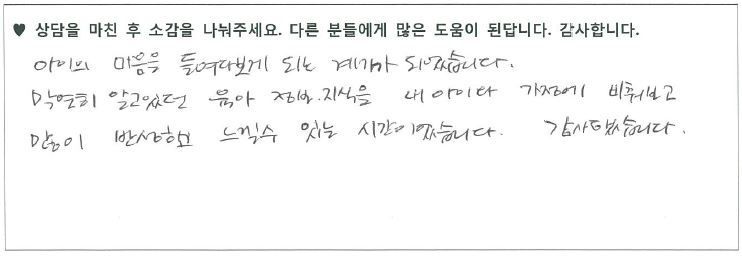 ♥ 상담을 마친 후 소감을 나눠주세요. 다른 분들에게 많은 도움이 된답니다. 감사합니다.
아이의 마음을 들여다보게 되는 계기가 되었습니다.
막연히 알고있었던 육아 정보.지식을 내 아이나 가정에 비춰보고
많이 반성하고 느낄수 있는 시간이었습니다. 감사했습니다.